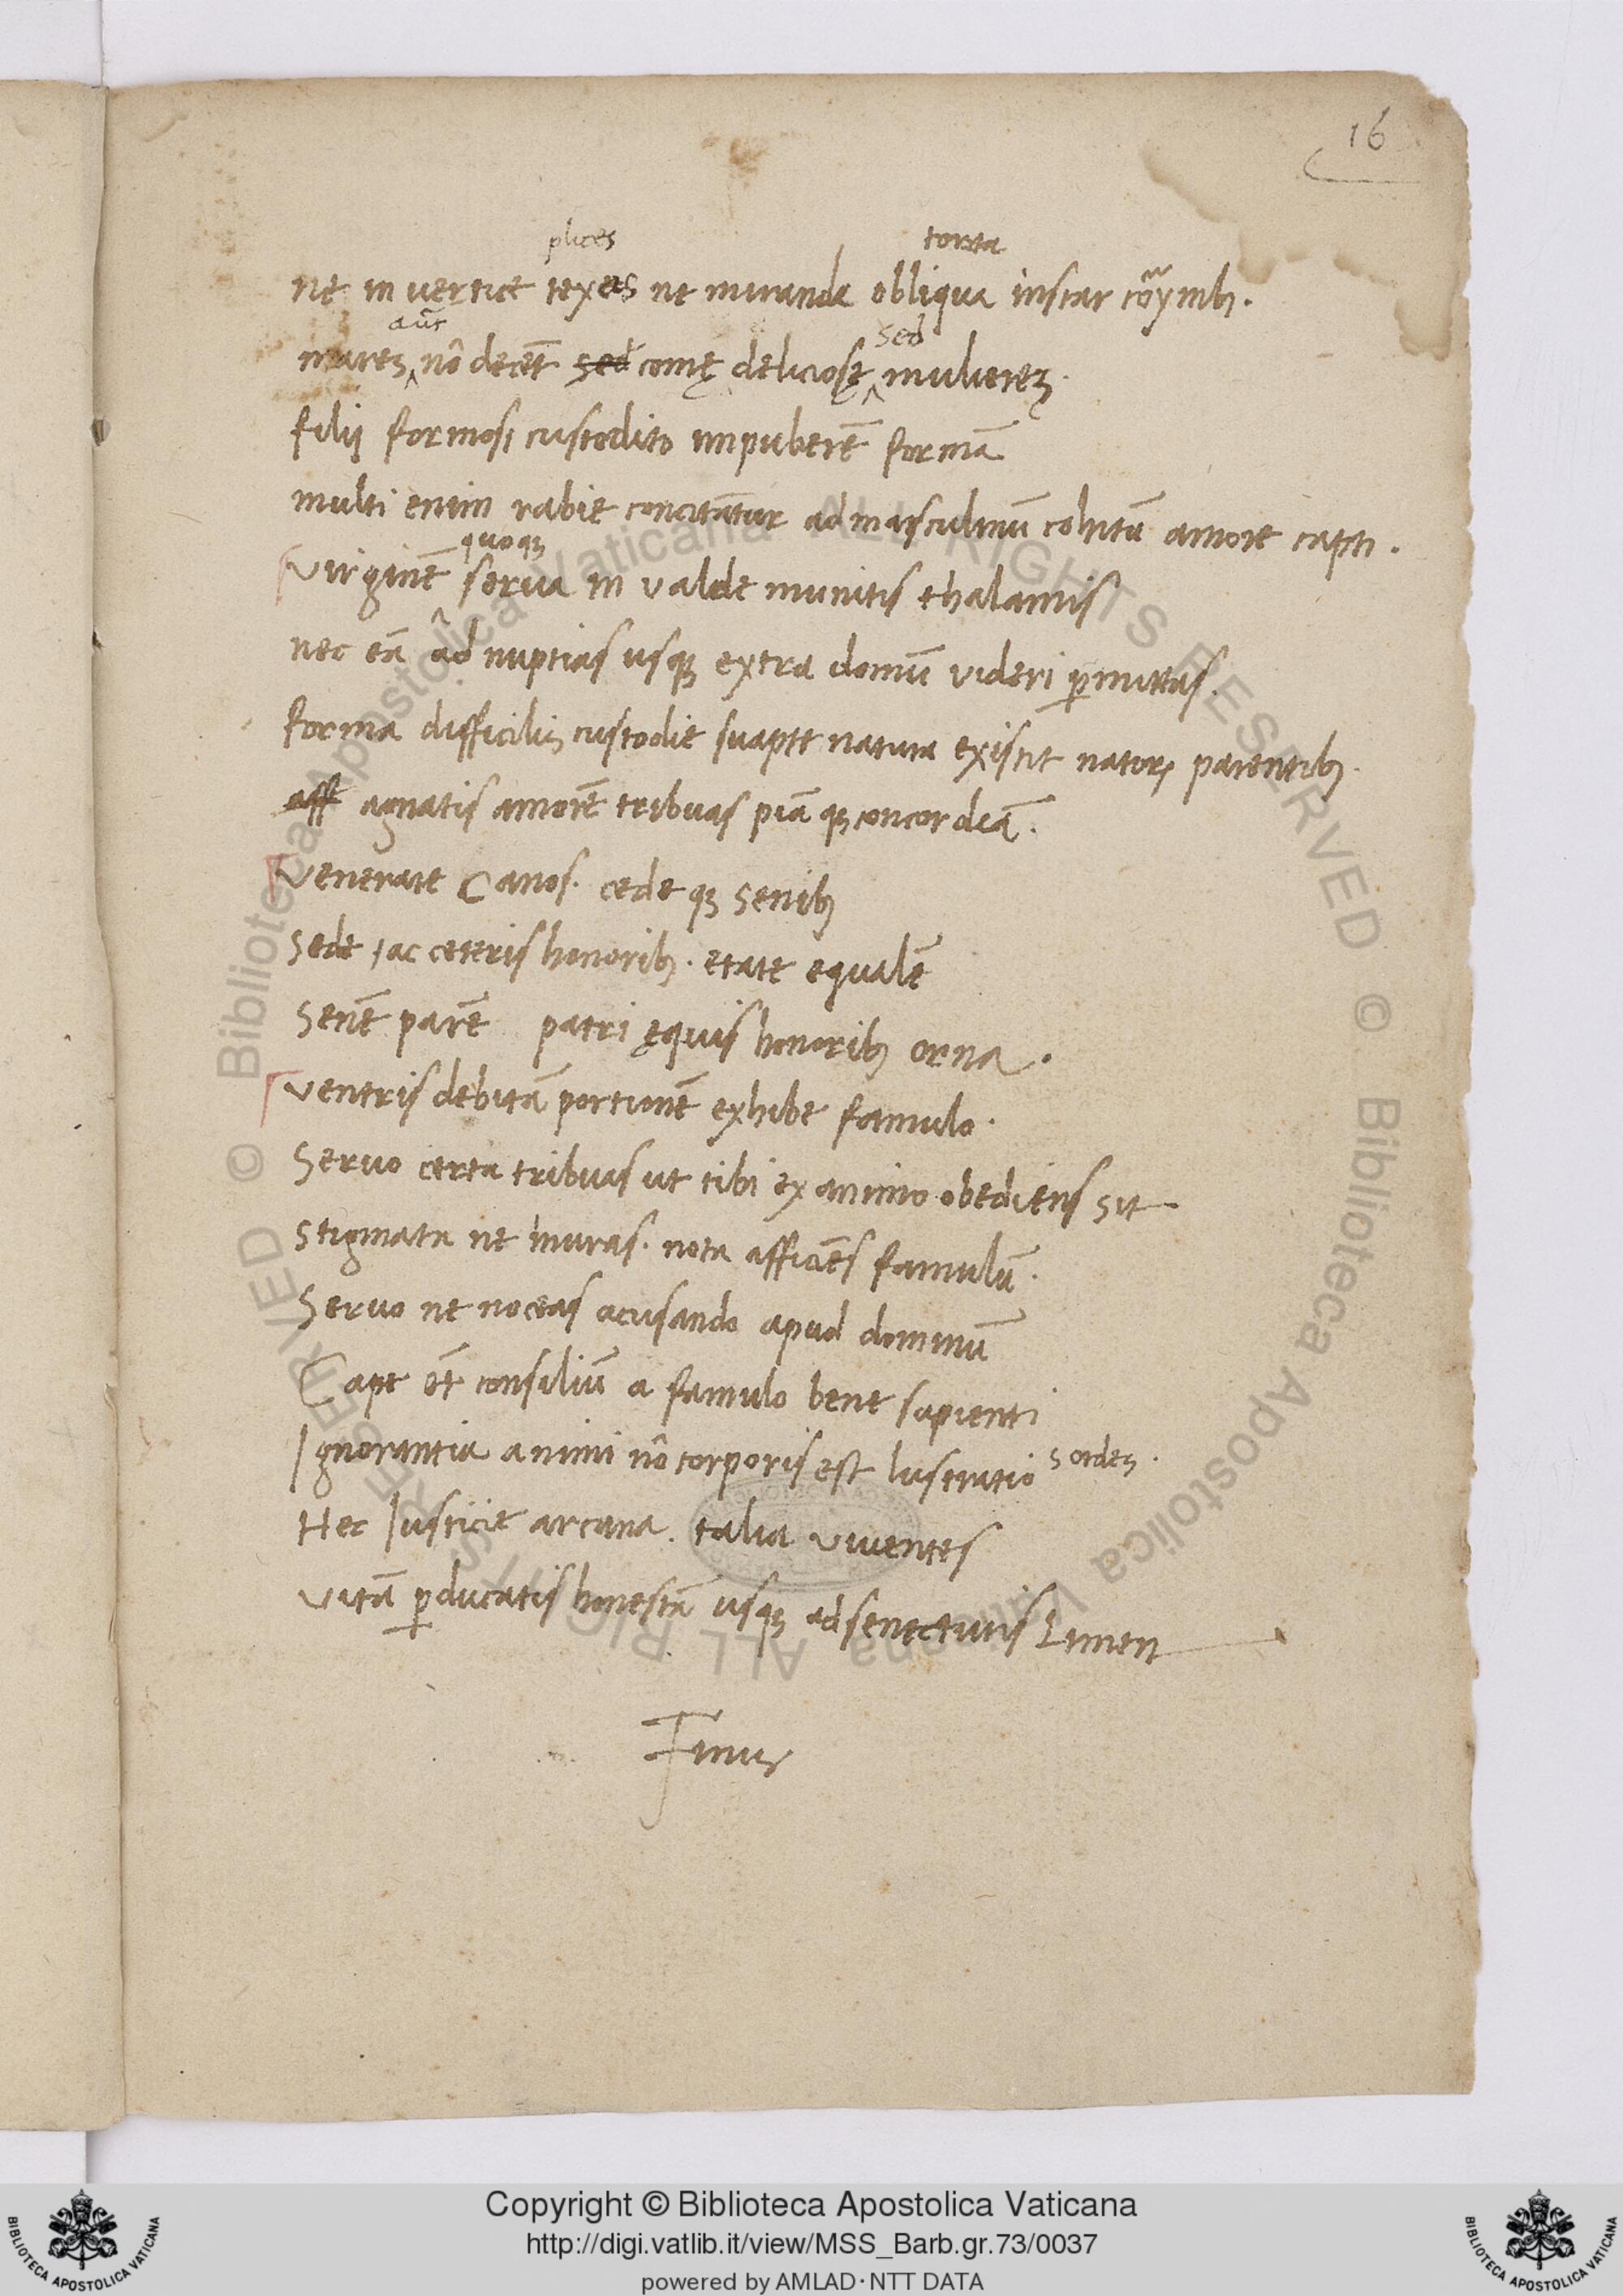 16
plices torta
ne in vertice texas ne miranda obliqua instar corymbꝫ.
aūt sed
mareꝫ nō decēt sed comę deliciosę muliereꝫ.
filij formosi custodito impuberē formā
multi enim rabie concitātur ad masculinū cohitū amore capti.
quoqꝫ
Virginē serva in valde munitis thalamis
nec eā ad nuptias usqꝫ extra domū videri ꝑmittas.
forma difficiliꝫ custodie suapte natura existit natoꝝ parentibꝫ.
aff agnatis amorē tribuas piā qꝫ concordiā.
Venerare Canos. cede qꝫ senibꝫ
Sede / ac ceteris honoribꝫ. etate equalē
Senē parē patri ęquis honoribꝫ orna.
Ventris debitā portionē exhibe famulo.
Servo certa tribuas ut tibi ex animo obediens sit
Stigmata ne inuras. nota afficiēs famulū.
Servo ne noceas acusando apud dominū
Cape ēt consiliū a famulo bene sapienti
Ignorantia animi nō corporis est lustratio sordeꝫ.
Hec Iusticie arcana. talia viventes
Vitā ꝑducatis honestā usqꝫ ad senectutis Limen
Finis
© Biblioteca Apostolica Vaticana ALL RIGHTS RESERVED
© Biblioteca Apostolica Vaticana ALL RIGHTS RESERVED
BIBLIOTECA APOSTOLICA VATICANA
Copyright © Biblioteca Apostolica Vaticana
http://digi.vatlib.it/view/MSS_Barb.gr.73/0037
powered by AMLAD·NTT DATA
BIBLIOTECA APOSTOLICA VATICANA